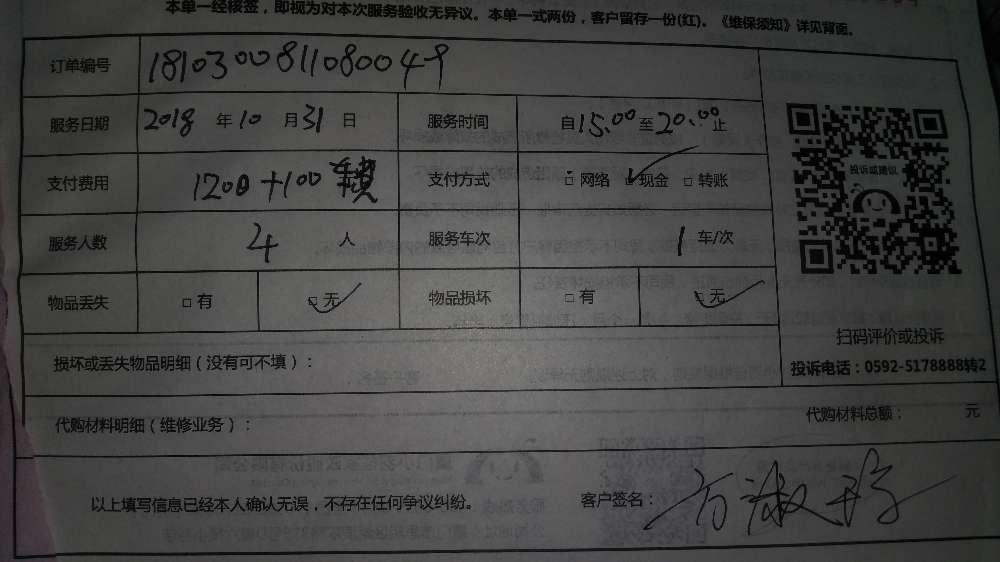 本单一经核签，即视为对本次服务验收无异议。本单一式两份，客户留存一份(红)。《维保须知》详见背面。
订单编号 181030081108004
服务日期 2018 年 10 月 31 日 服务时间 自15:00至20:00止
支付费用 1200+100 支付方式 □网络 ☑现金 □转账
投诉或建议
服务人数 4 人 服务车次 1 车/次
物品丢失 □有 ☑无 物品损坏 □有 ☑无
扫码评价或投诉
损坏或丢失物品明细（没有可不填）：
投诉电话：0592-5178888转2
代购材料明细（维修业务）： 代购材料总额： 元
以上填写信息已经本人确认无误，不存在任何争议纠纷。 客户签名：方淑